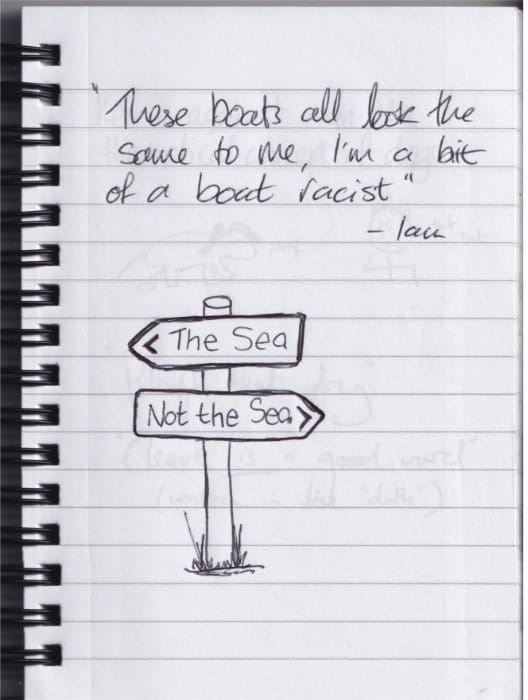 "These boats all look the
same to me, I'm a bit
of a boat racist"
- Ian
< The Sea
Not the Sea >